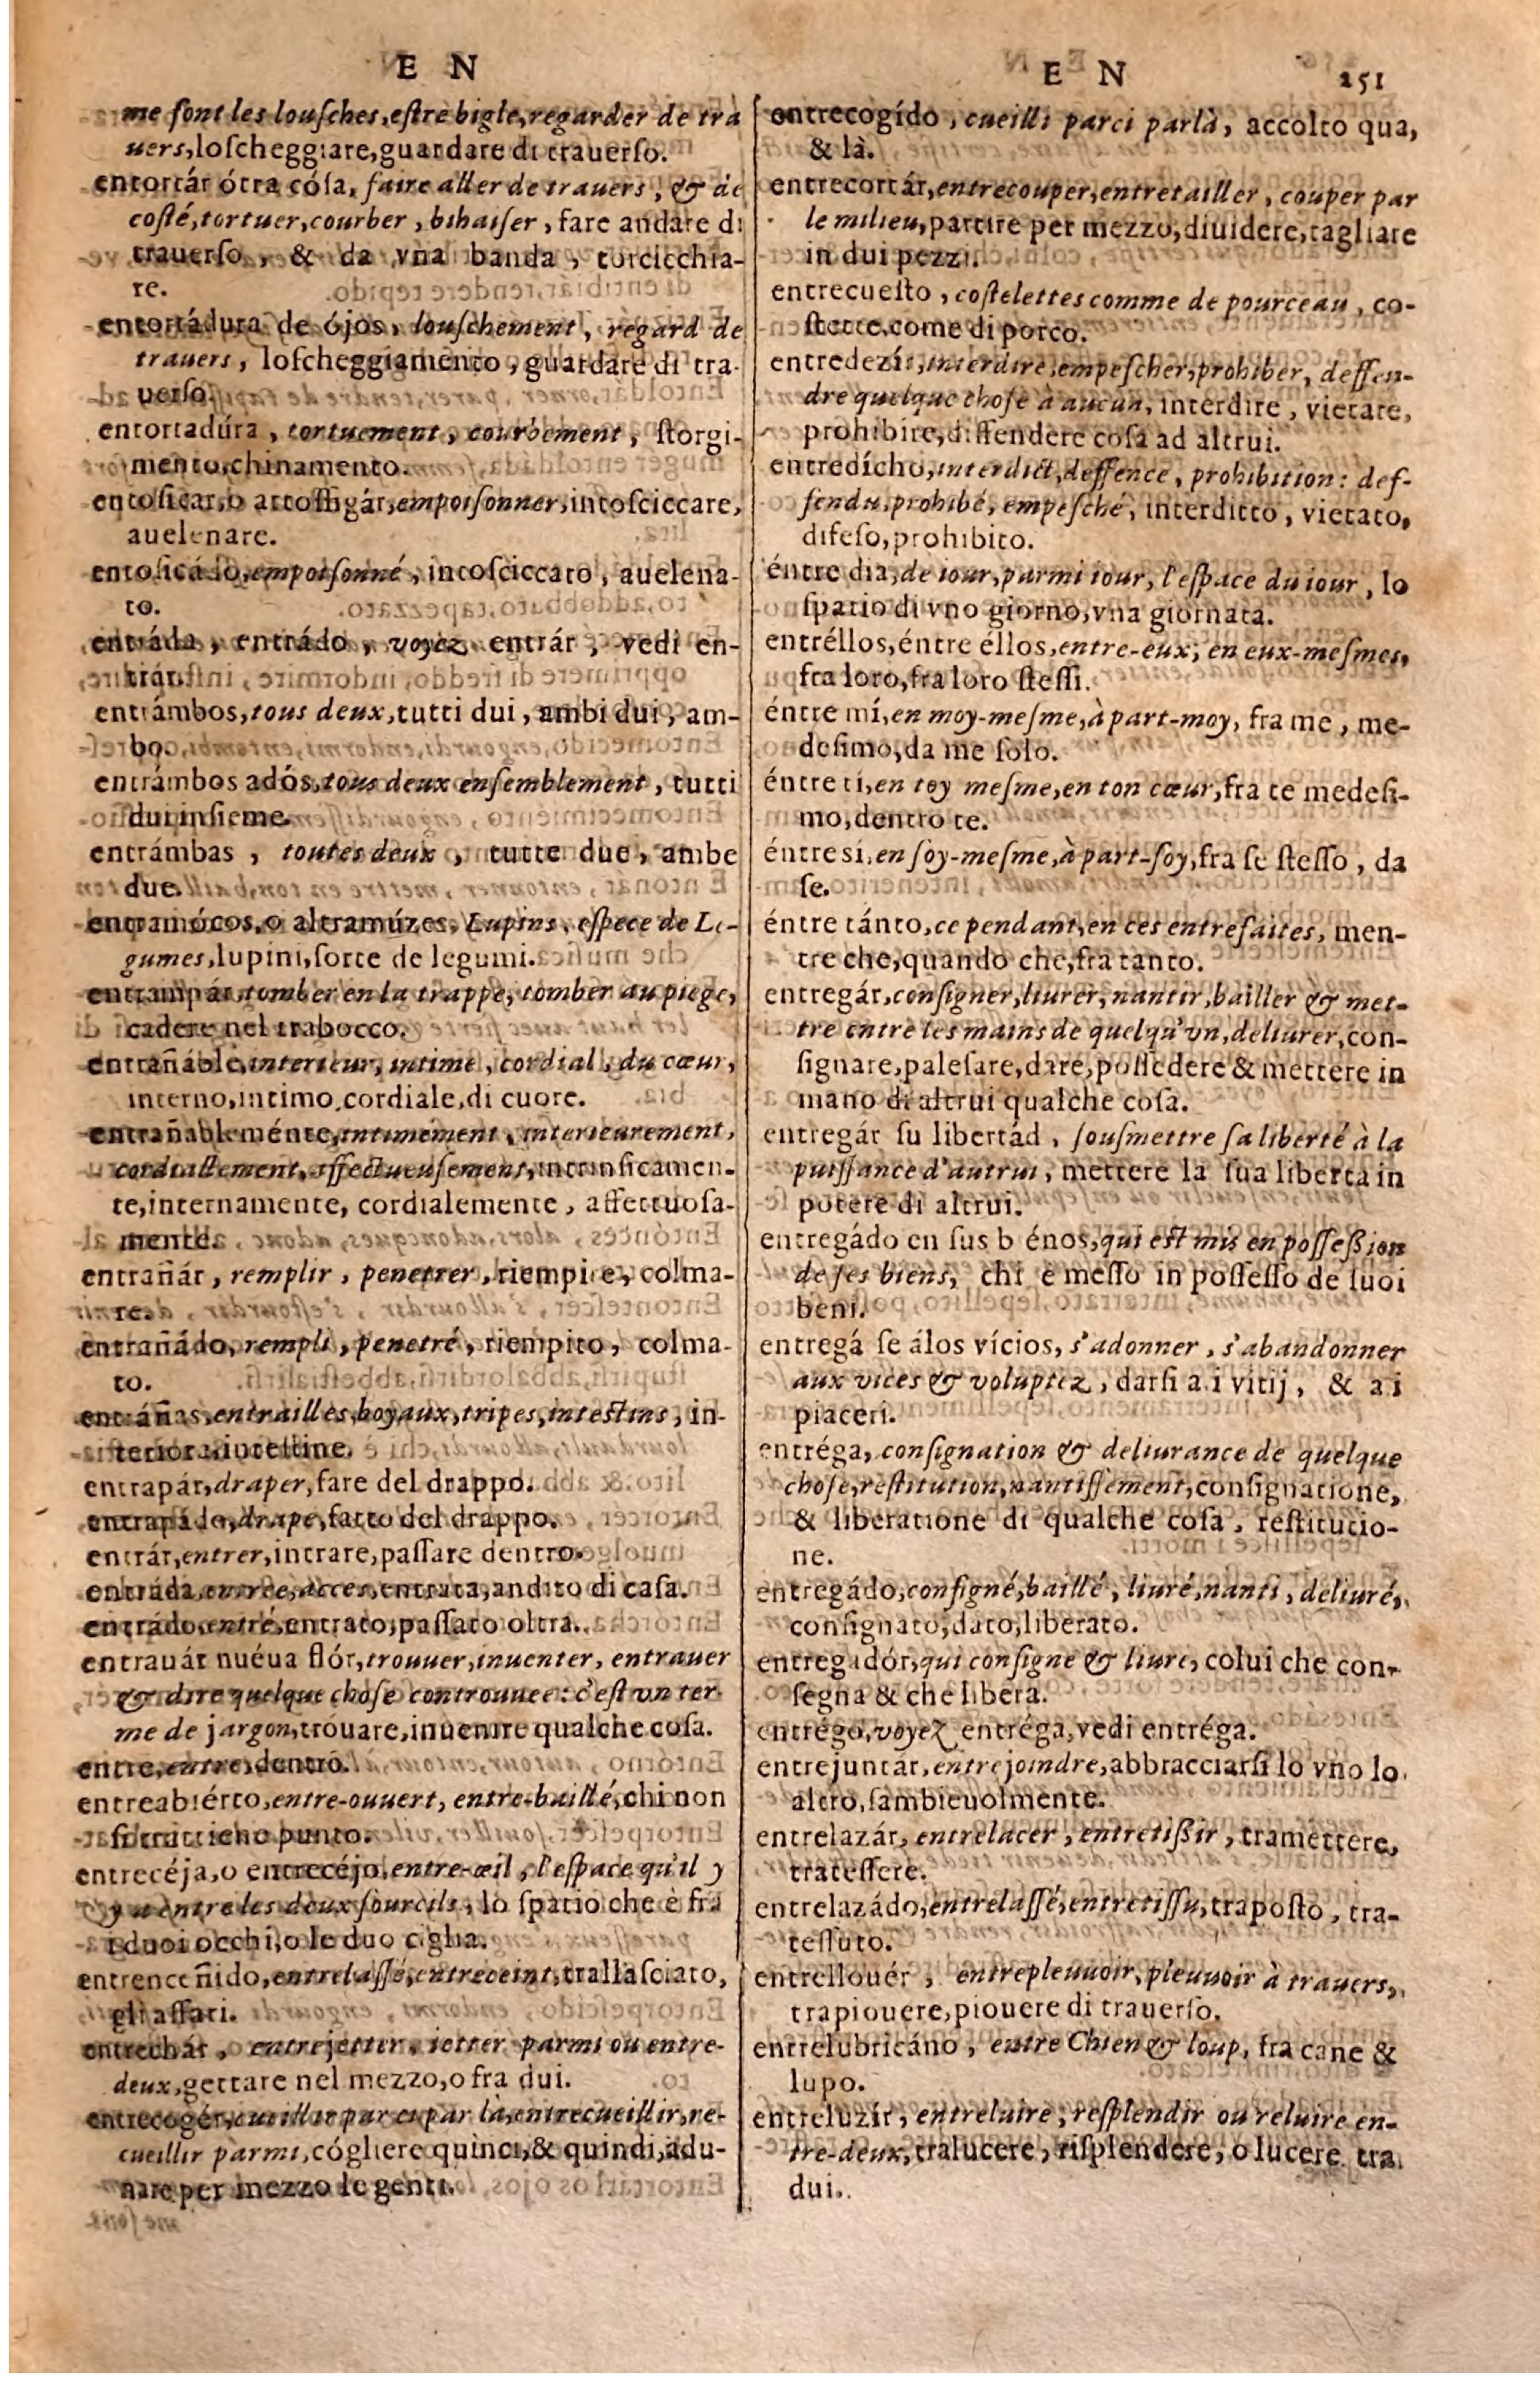 E N
me ſont les louſches,eſtre bigle,regarder de tra
uers,loſcheggiare,guardare di trauerſo.
entortár ótra cóſa, faire aller de trauers, & de
coſté,tortuer,courber, bihaiſer, fare andare di
trauerſo, & da vna banda, torcicchia-
re.
entortádura de ójos, louſchement, regard de
trauers, loſcheggiamento, guardare di tra-
uerſo.
entortadúra, tortuement, courbement, ſtorgi-
mento,chinamento.
entoſicar,o attoſſigár,empoiſonner,intoſciccare,
auelenare.
entoſicádo,empoiſonné, intoſciccato, auelena-
to.
entráda, entrádo, voyez entrár, vedi en-
trár.
entrámbos,tous deux,tutti dui, ambi dui, am-
bo.
entrámbos adós,tous deux enſemblement, tutti
dui inſieme.
entrámbas, toutes deux, tutte due, ambe
due.
entramócos,o altramúzes, Lupins, eſpece de Le-
gumes,lupini,ſorte de legumi.
entrampár,tomber en la trappe, tomber au piege,
cadere nel trabocco.
entrañáble,interieur, intime, cordial, du cœur,
interno,intimo,cordiale,di cuore.
entrañableménte,intimement, interieurement,
cordiallement,affectueuſement,intrinſicamen-
te,internamente, cordialemente, affettuoſa-
mente.
entrañár, remplir, penetrer, riempire, colma-
re.
entrañádo, rempli, penetré, riempito, colma-
to.
entráñas,entrailles,boyaux,tripes,inteſtins, in-
teriora,inteſtine.
entrapár,draper,fare del drappo.
entrapádo,drapé,fatto del drappo.
entrár,entrer,intrare,paſſare dentro.
entráda,entrée,acces,entrata,andito di caſa.
entrádo,entré,entrato,paſſato oltra.
entrauár nuéua flór,trouuer,inuenter, entrauer
& dire quelque choſe controuuee: c'eſt vn ter
me de jargon,trouare,inuenire qualche coſa.
entre,entre,dentro.
entreabiérto,entre-ouuert, entre-baillé,chi non
ſi trattiene punto.
entrecéja,o entrecéjo,entre-œil, l'eſpace qu'il y
y a entre les deux ſourcils, lo ſpatio che è fra
i duoi occhi,o le duo ciglia.
entrenceñido,entrelaſſé,entreceint,trallaſciato,
gli affari.
entrechár, entrejetter, ietter parmi ou entre-
deux,gettare nel mezzo,o fra dui.
entrecogér,cueillir par ci par là,entrecueillir,re-
cueillir parmi,cógliere quinci,& quindi,adu-
nare per mezzo le genti.
E N 251
entrecogído, cueilli parci parlà, accolto qua,
& là.
entrecortár,entrecouper,entretailler, couper par
le milieu,partire per mezzo,diuidere,tagliare
in dui pezzi.
entrecueſto, coſtelettes comme de pourceau, co-
ſtette,come di porco.
entredezír,interdire,empeſcher,prohiber, deffen-
dre quelque choſe à aucun, interdire, vietare,
prohibire,diffendere coſa ad altrui.
entredícho,interdict,deffence, prohibition: def-
fendu,prohibé, empeſché, interditto, vietato,
difeſo,prohibito.
éntre dia,de iour,parmi iour, l'eſpace du iour, lo
ſpatio di vno giorno,vna giornata.
entréllos,éntre éllos,entre-eux, en eux-meſmes,
fra loro,fra loro ſteſſi.
éntre mí,en moy-meſme,à part-moy, fra me, me-
deſimo,da me ſolo.
éntre ti,en toy meſme,en ton cœur,fra te medeſi-
mo,dentro te.
éntre si,en ſoy-meſme,à part-ſoy,fra ſe ſteſſo, da
ſe.
éntre tánto,ce pendant,en ces entrefaites, men-
tre che,quando che,fra tanto.
entregár,conſigner,liurer,nantir,bailler & met-
tre entre les mains de quelqu'vn,deliurer,con-
ſignare,paleſare,dare,poſſedere & mettere in
mano di altrui qualche coſa.
entregár ſu libertád, ſouſmettre ſa liberté à la
puiſſance d'autrui, mettere la ſua liberta in
potere di altrui.
entregádo en ſus b énos,qui eſt mis en poſſeßion
de ſes biens, chi è meſſo in poſſeſſo de ſuoi
beni.
entregá ſe álos vícios, s'adonner, s'abandonner
aux vices & voluptez, darſi a i vitij, & a i
piaceri.
entréga, conſignation & deliurance de quelque
choſe,reſtitution,nantiſſement,conſignatione,
& liberatione di qualche coſa, reſtitutio-
ne.
entregádo,conſigné,baillé, liuré,nanti, deliuré,
conſignato,dato,liberato.
entregadór,qui conſigne & liure, colui che con-
ſegna & che libera.
entrégo,voyez entréga,vedi entréga.
entrejuntár,entrejoindre,abbracciarſi lo vno lo
altro,ſambieuolmente.
entrelazár, entrelacer, entretißir, tramettere,
trateſſere.
entrelazádo,entrelaſſé,entretiſſu,trapoſto, tra-
teſſuto.
entrellouér, entrepleuuoir,pleuuoir à trauers,
trapiouere,piouere di trauerſo.
entrelubricáno, entre Chien & loup, fra cane &
lupo.
entreluzír, entreluire, reſplendir ou reluire en-
tre-deux,tralucere, riſplendere, o lucere tra
dui.